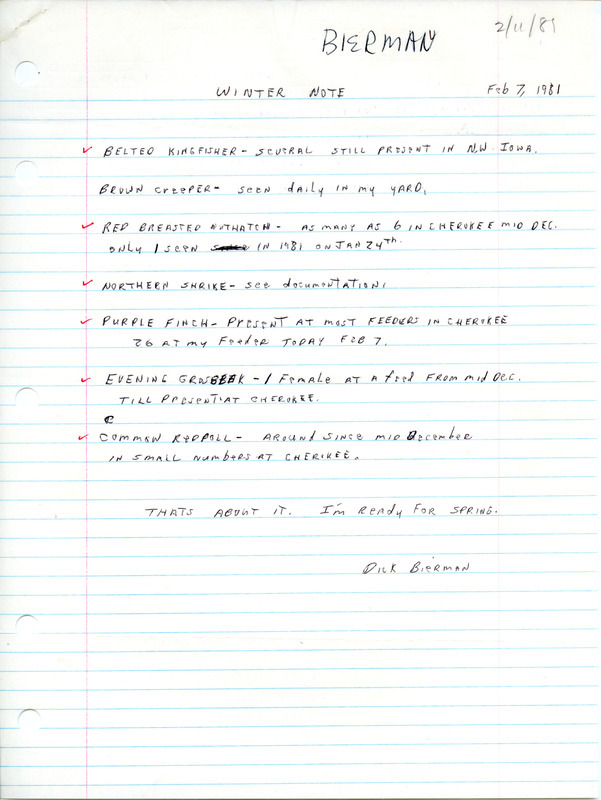 BIERMAN
2/11/81
WINTER NOTE
Feb 7, 1981
BELTED KINGFISHER - SEVERAL STILL PRESENT IN N.W. IOWA.
BROWN CREEPER - seen daily in my yARD.
RED BREASTED NUTHATCH - AS MANY AS 6 IN CHEROKEE MID DEC.
ONLY 1 SEEN IN 1981 ON JAN 24th.
NORTHERN SHRIKE - see documentation.
PURPLE FINCH - PRESENT AT MOST FEEDERS IN CHEROKEE
26 AT my Feeder TODAY FEB 7.
EVENING GROSBEEK - 1 Female AT A feed FROM mid DEC.
TILL PRESENT AT CHEROKEE.
C
COMMON REDPOLL - AROUND SINCE MID December
IN SMALL NUMBERS AT CHEROKEE.
THATS ABOUT IT. I'm Ready FOR SPRING.
DICK BIERMAN